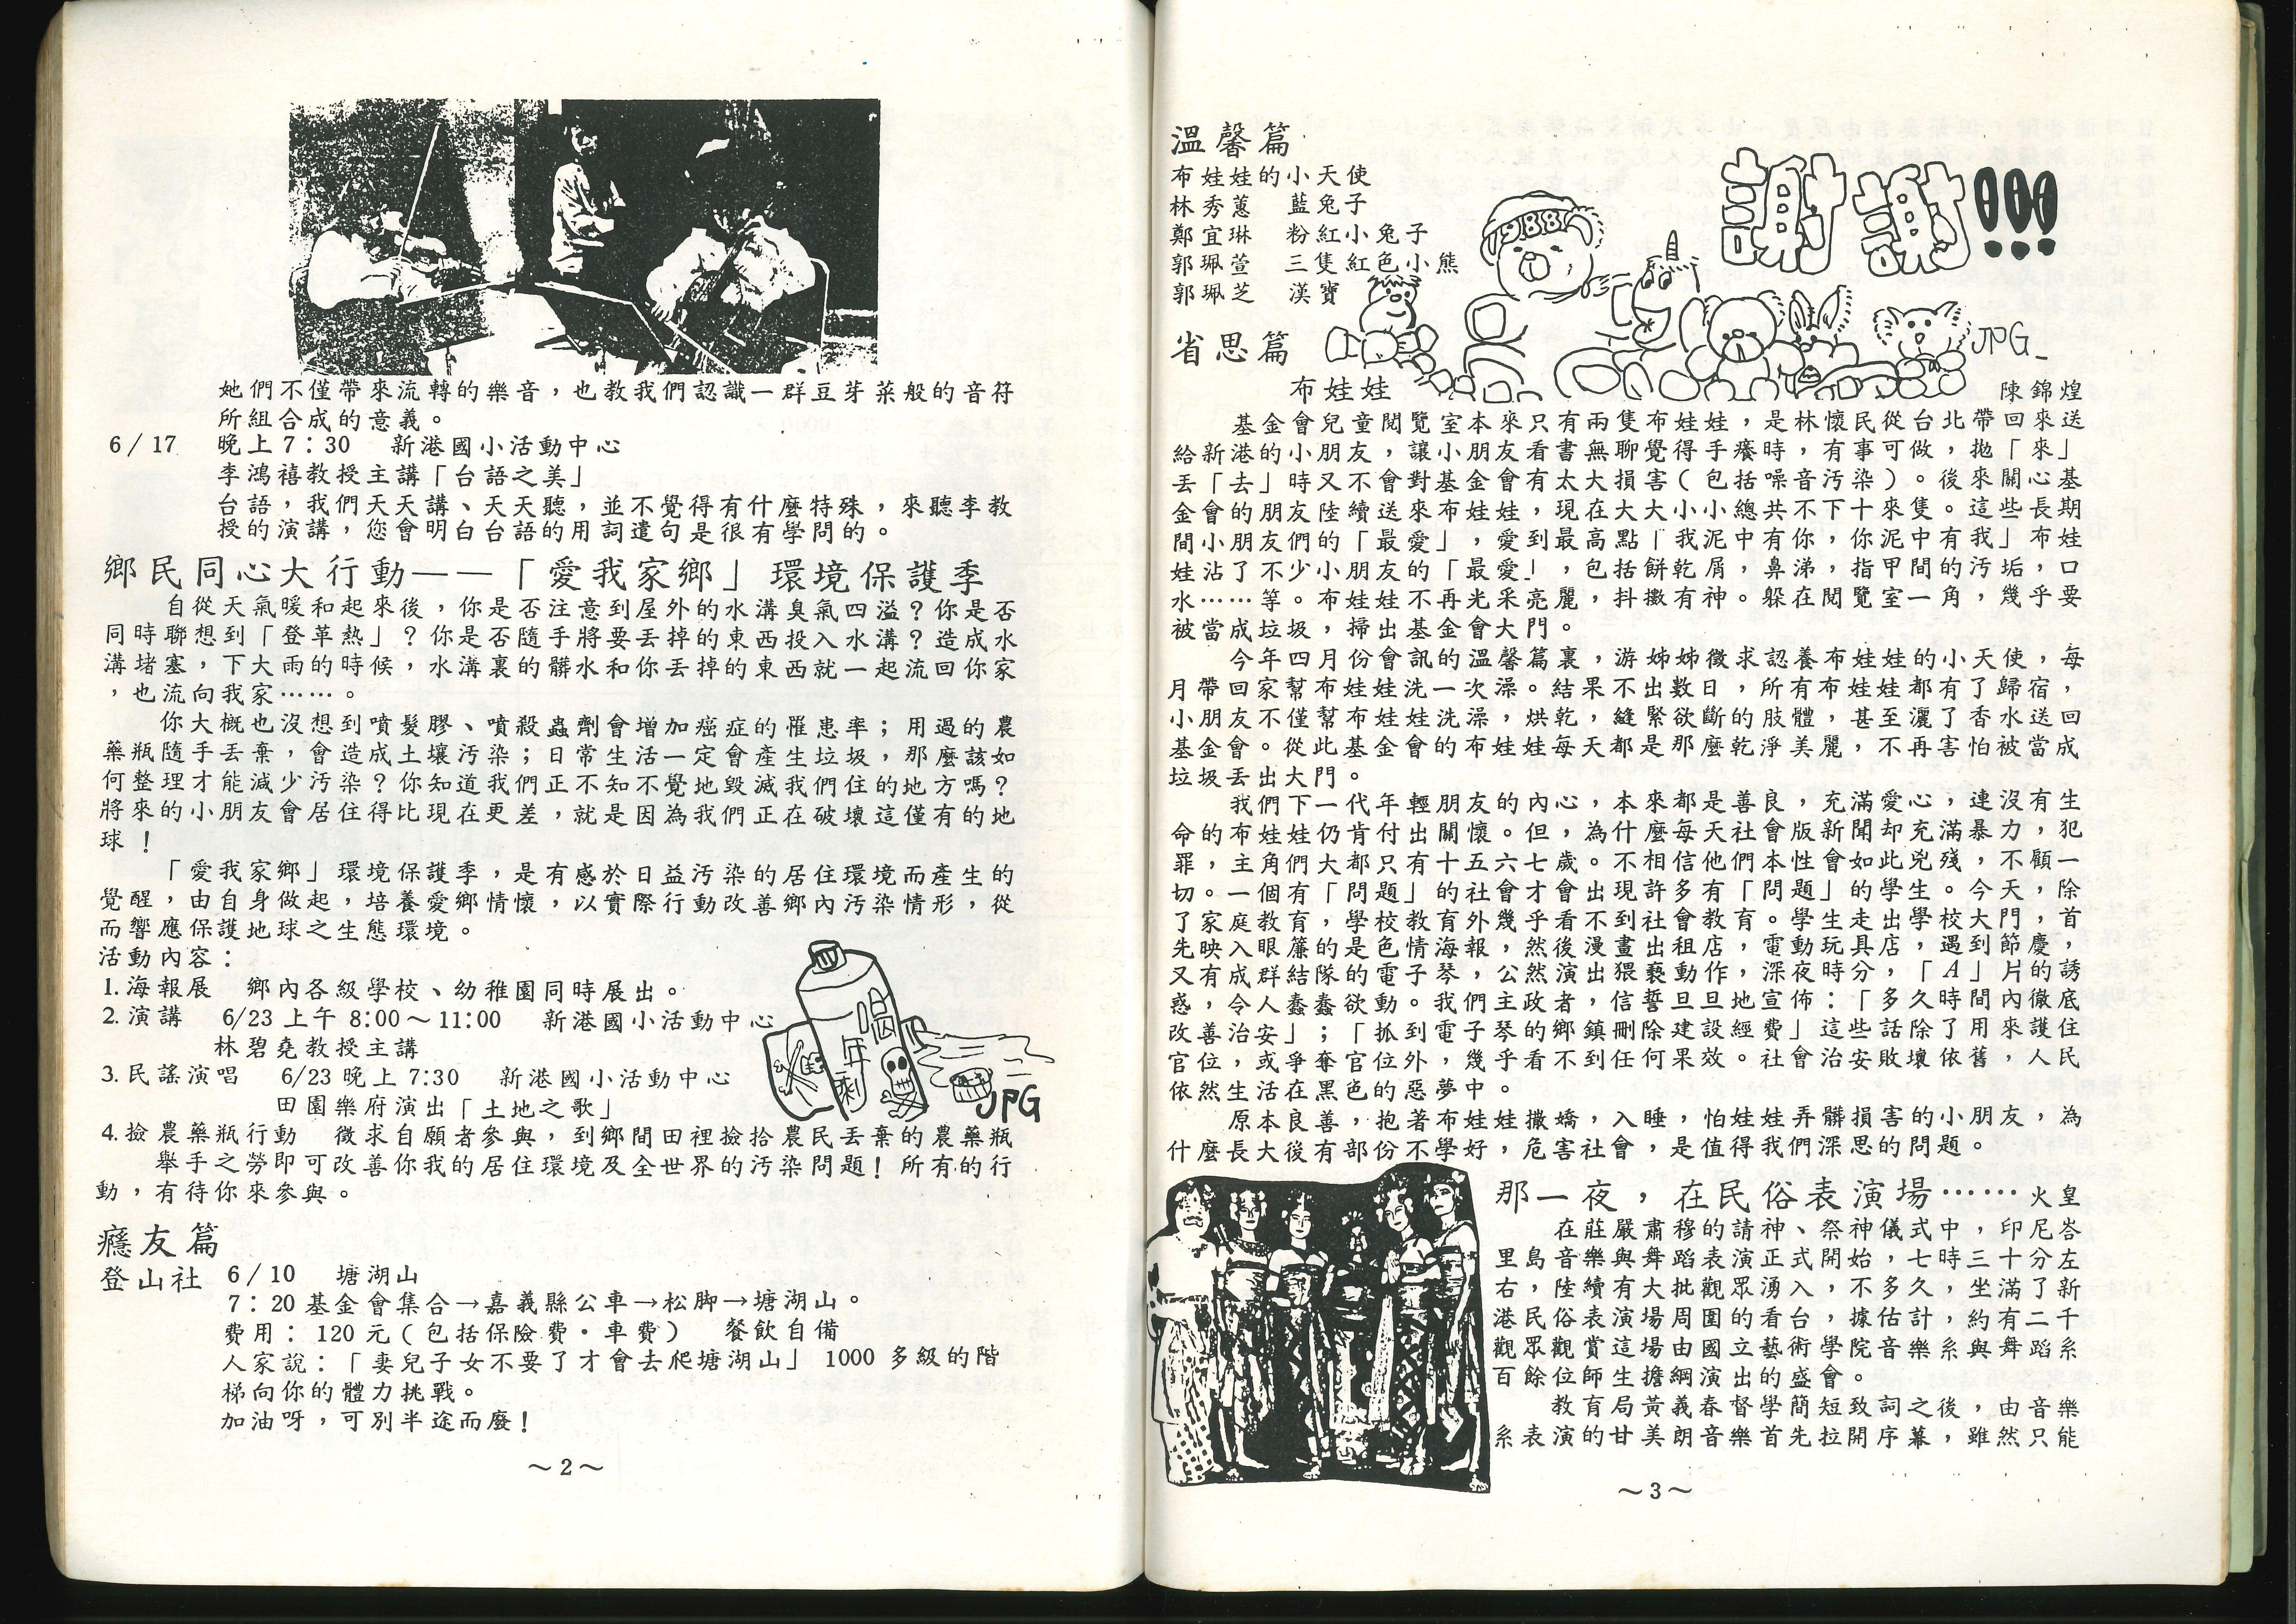 她們不僅帶來流轉的樂音，也教我們認識一群豆芽菜般的音符
所組合成的意義。
6/17 晚上7：30 新港國小活動中心
李鴻禧教授主講「台語之美」
台語，我們天天講、天天聽，並不覺得有什麼特殊，來聽李教
授的演講，您會明白台語的用詞遣句是很有學問的。
鄉民同心大行動——「愛我家鄉」環境保護季
自從天氣暖和起來後，你是否注意到屋外的水溝臭氣四溢？你是否
同時聯想到「登革熱」？你是否隨手將要丟掉的東西投入水溝？造成水
溝堵塞，下大雨的時候，水溝裏的髒水和你丟掉的東西就一起流回你家
，也流向我家……。
你大概也沒想到噴髮膠、噴殺蟲劑會增加癌症的罹患率；用過的農
藥瓶隨手丟棄，會造成土壤污染；日常生活一定會產生垃圾，那麼該如
何整理才能減少污染？你知道我們正不知不覺地毀滅我們住的地方嗎？
將來的小朋友會居住得比現在更差，就是因為我們正在破壞這僅有的地
球！
「愛我家鄉」環境保護季，是有感於日益污染的居住環境而產生的
覺醒，由自身做起，培養愛鄉情懷，以實際行動改善鄉內污染情形，從
而響應保護地球之生態環境。
活動內容：
1.海報展 鄉內各級學校、幼稚園同時展出。
2.演講 6/23 上午 8:00～11:00 新港國小活動中心
林碧堯教授主講
3.民謠演唱 6/23 晚上 7:30 新港國小活動中心
田園樂府演出「土地之歌」
JPG
4.撿農藥瓶行動 徵求自願者參與，到鄉間田裡撿拾農民丟棄的農藥瓶
舉手之勞即可改善你我的居住環境及全世界的污染問題！所有的行
動，有待你來參與。
癮友篇
登山社 6/10 塘湖山
7：20基金會集合→嘉義縣公車→松脚→塘湖山。
費用：120元（包括保險費・車費） 餐飲自備
人家說：「妻兒子女不要了才會去爬塘湖山」1000多級的階
梯向你的體力挑戰。
加油呀，可別半途而廢！
～2～
溫馨篇
布娃娃的小天使
林秀蕙 藍兔子
鄭宜琳 粉紅小兔子
郭珮萱 三隻紅色小熊
郭珮芝 漢寶
1988
謝謝!!!
JPG
省思篇
布娃娃 陳錦煌
基金會兒童閱覽室本來只有兩隻布娃娃，是林懷民從台北帶回來送
給新港的小朋友，讓小朋友看書無聊覺得手癢時，有事可做，拋「來」
丟「去」時又不會對基金會有太大損害（包括噪音污染）。後來關心基
金會的朋友陸續送來布娃娃，現在大大小小總共不下十來隻。這些長期
間小朋友們的「最愛」，愛到最高點「我泥中有你，你泥中有我」布娃
娃沾了不少小朋友的「最愛」，包括餅乾屑，鼻涕，指甲間的污垢，口
水……等。布娃娃不再光采亮麗，抖擻有神。躲在閱覽室一角，幾乎要
被當成垃圾，掃出基金會大門。
今年四月份會訊的溫馨篇裏，游姊姊徵求認養布娃娃的小天使，每
月帶回家幫布娃娃洗一次澡。結果不出數日，所有布娃娃都有了歸宿，
小朋友不僅幫布娃娃洗澡，烘乾，縫緊欲斷的肢體，甚至灑了香水送回
基金會。從此基金會的布娃娃每天都是那麼乾淨美麗，不再害怕被當成
垃圾丟出大門。
我們下一代年輕朋友的內心，本來都是善良，充滿愛心，連沒有生
命的布娃娃仍肯付出關懷。但，為什麼每天社會版新聞却充滿暴力，犯
罪，主角們大都只有十五六七歲。不相信他們本性會如此兇殘，不顧一
切。一個有「問題」的社會才會出現許多有「問題」的學生。今天，除
了家庭教育，學校教育外幾乎看不到社會教育。學生走出學校大門，首
先映入眼簾的是色情海報，然後漫畫出租店，電動玩具店，遇到節慶，
又有成群結隊的電子琴，公然演出猥褻動作，深夜時分，「A」片的誘
惑，令人蠢蠢欲動。我們主政者，信誓旦旦地宣佈：「多久時間內徹底
改善治安」；「抓到電子琴的鄉鎮刪除建設經費」這些話除了用來護住
官位，或爭奪官位外，幾乎看不到任何果效。社會治安敗壞依舊，人民
依然生活在黑色的惡夢中。
原本良善，抱著布娃娃撒嬌，入睡，怕娃娃弄髒損害的小朋友，為
什麼長大後有部份不學好，危害社會，是值得我們深思的問題。
那一夜，在民俗表演場……火皇
在莊嚴肅穆的請神、祭神儀式中，印尼峇
里島音樂與舞蹈表演正式開始，七時三十分左
右，陸續有大批觀眾湧入，不多久，坐滿了新
港民俗表演場周圍的看台，據估計，約有二千
觀眾觀賞這場由國立藝術學院音樂系與舞蹈系
百餘位師生擔綱演出的盛會。
教育局黃義春督學簡短致詞之後，由音樂
系表演的甘美朗音樂首先拉開序幕，雖然只能
～3～